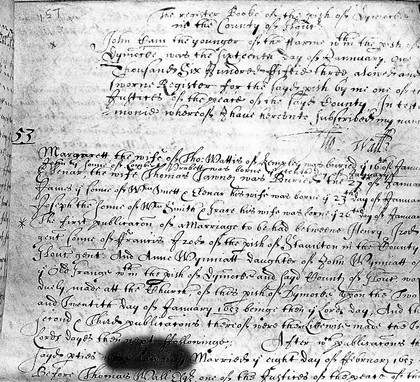 The register Booke of the pish of Dymocke
in the County of Glouc
John Cam the younger of the Farme wthin the pish of
Dymocke was the sixteenth day of January One
Thousand Six Hundred fiftie three alowed and
sworne Register for the sayd pish by me one of the
Justices of the peace of the sayd County In testi
monie whereof I have hereunto subscribed my name
Tho Wall
53
Margarett the wife of Tho: Wattis of Kempley was buried 16 of January
Elenor the wife Thomas Tawney was Buried the 27 of January
James ye sonne of Wm Smett & Elenor his wife was borne ye 23 day of January
Joseph the sonne of Wm Smith & Grace his wife was borne ye 26 day of January
The first publication of a Marriage to be had betweene Henry
gent sonne of Francis of the pish of Staunton in the County
Glouc gent And Anne Wynniatt daughter of John Wynniatt of
ye Old Grange wthin the pish of Dymocke and sayd County of Glouc was
duely made at the Church of this pish of Dymocke upon the Two
and Twentieth day of January 1653 beinge then ye Lords day, And the
second & Third publications thereof were likewise made the two
Lords dayes then next followinge. After wch publications the
sayd pties Married ye eight day of February 1653
Before Thomas Wall Esq one of the Justices of the peace of